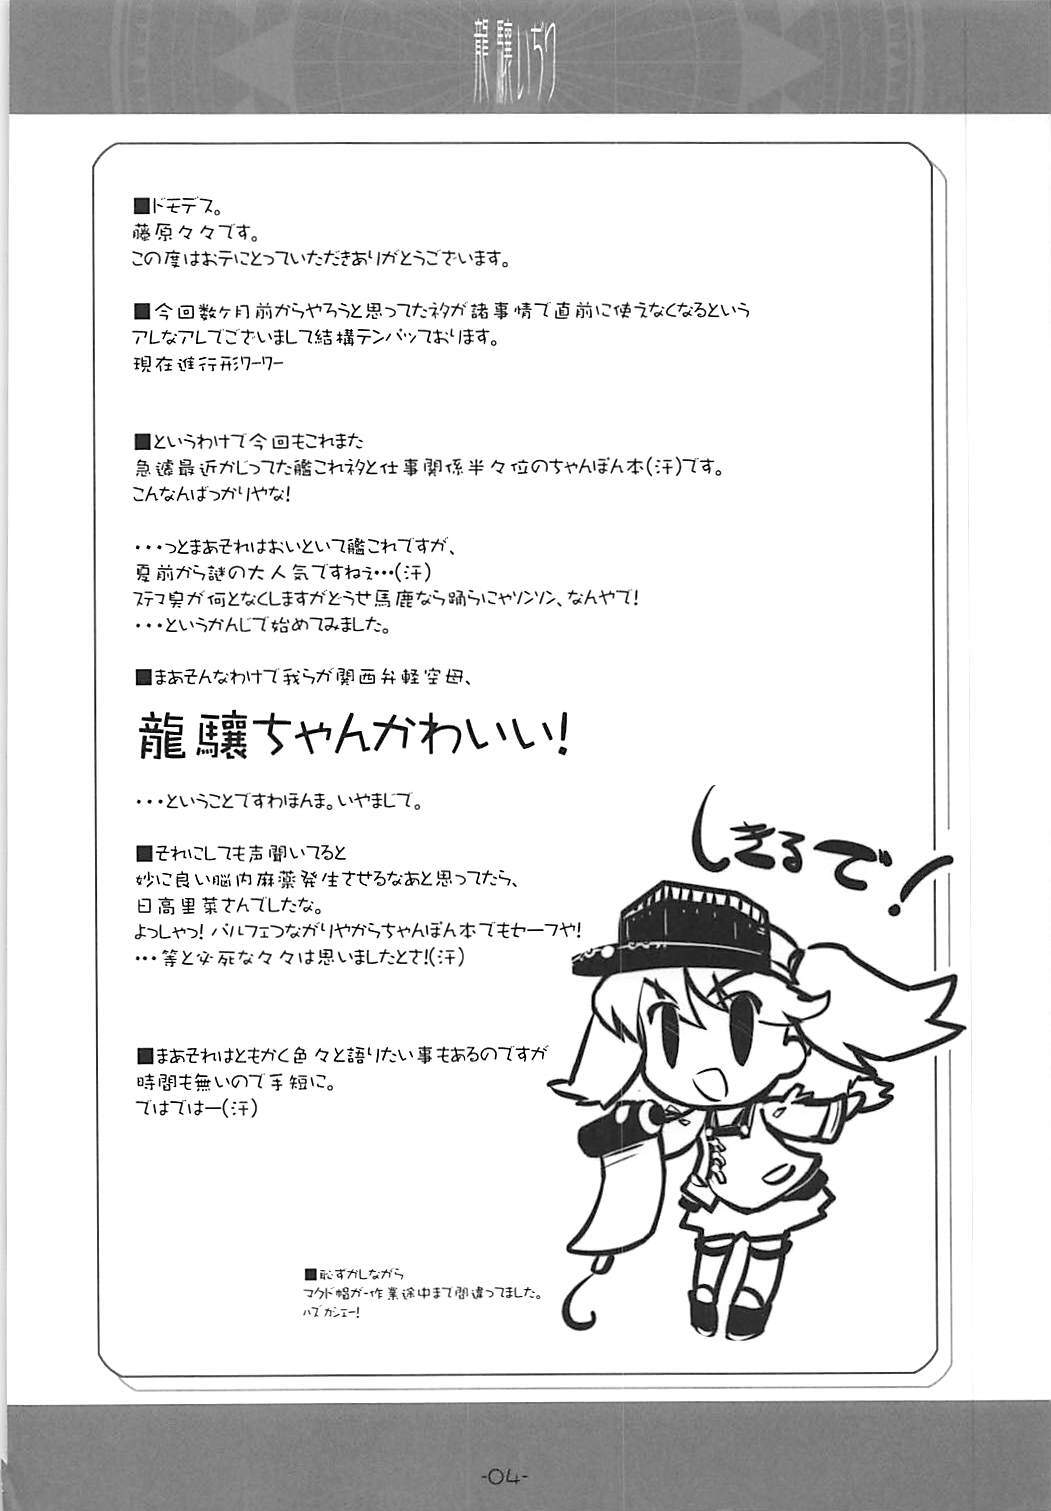 龍驤いぢり
■ドモデス。
藤原々々です。
この度はお手にとっていただきありがとうございます。
■今回数ヶ月前からやろうと思ってたネタが諸事情で直前に使えなくなるという
アレなアレでございまして結構テンパッております。
現在進行形ワーワー
■というわけで今回もこれまた
急遽最近かじってた艦これネタと仕事関係半々位のちゃんぽん本(汗)です。
こんなんばっかりやな!
・・・っとまあそれはおいといて艦これですが、
夏前から謎の大人気ですねぇ・・・(汗)
ステマ臭が何となくしますがどうせ馬鹿なら踊らにゃソンソン、なんやで!
・・・というかんじで始めてみました。
■まあそんなわけで我らが関西弁軽空母、
龍驤ちゃんかわいい!
・・・ということですわほんま。いやまじで。
■それにしても声聞いてると
妙に良い脳内麻薬発生させるなあと思ってたら、
日高里菜さんでしたな。
よっしゃっ! パルフェつながりやからちゃんぽん本でもセーフや!
・・・等と必死な々々は思いましたとさ!(汗)
■まあそれはともかく色々と語りたい事もあるのですが
時間も無いので手短に。
ではではー(汗)
しきるで!
■恥ずかしながら
マクド帽が一作業途中まで間違ってました。
ハズカシエー!
-04-